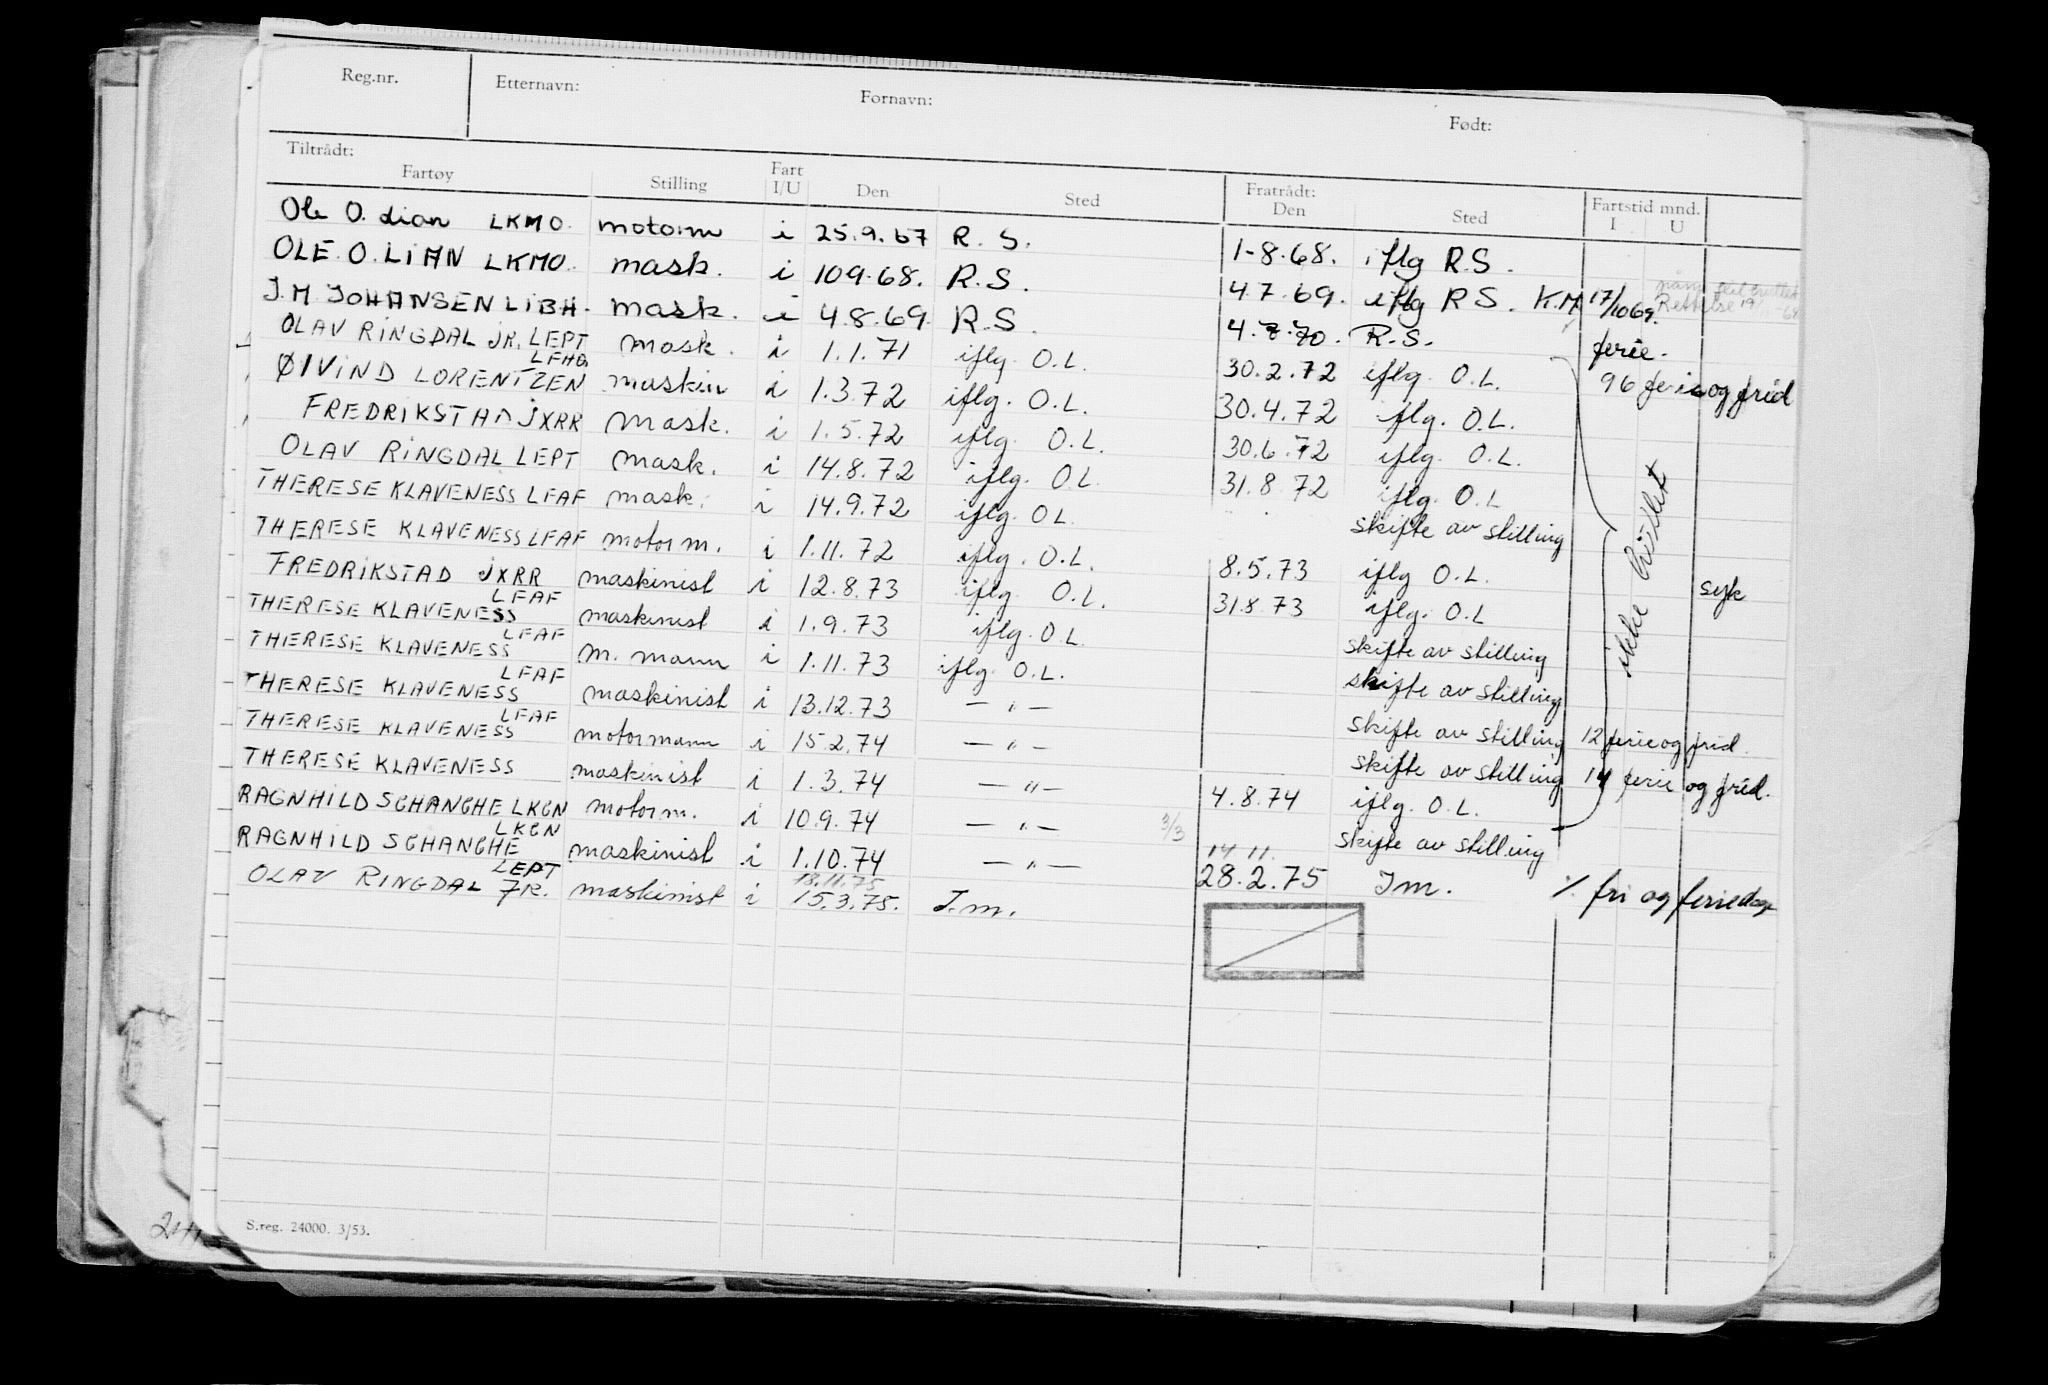 Reg.nr. Etternavn: Fornavn: Født:
Tiltrådt: Fratrådt: Fartstid mnd.
Fartøy Stilling Fart I/U Den Sted Den Sted I U
Ole O. Lian LKMO. motorm i 25.9.67 R. S. 1-8.68. iflg R.S.
OLE. O. LIAN LKMO. mask. i 109.68. R.S. 4.7.69. iflg R S. K.M 17/1069. Rettelse
J.M. JOHANSEN LIBH. mask. i 4.8.69. R.S. 4.7.70. R.S. ferie.
OLAV RINGDAL JR. LEPT mask. i 1.1.71 iflg. O.L. 30.2.72 iflg. O.L. 96 ferie og frid
ØIVIND LORENTZEN LFHG maskin i 1.3.72 iflg. O.L. 30.4.72 iflg. O.L.
FREDRIKSTAD JXRR mask. i 1.5.72 iflg. O.L. 30.6.72 iflg. O.L.
OLAV RINGDAL LEPT mask. i 14.8.72 iflg. O.L. 31.8.72 iflg. O.L
THERESE KLAVENESS LFAF mask. i 14.9.72 iflg. O L. skifte av stilling
THERESE KLAVENESS LFAF motorm. i 1.11.72 iflg. O.L. 8.5.73 iflg O.L. syk
FREDRIKSTAD JXRR maskinist i 12.8.73 iflg. O.L. 31.8.73 iflg. O.L
THERESE KLAVENESS LFAF maskinist i 1.9.73 iflg. O.L. skifte av stilling
THERESE KLAVENESS LFAF m. mann i 1.11.73 iflg. O.L. skifte av stilling
THERESE KLAVENESS LFAF maskinist i 13.12.73 — " — skifte av stilling 12 ferie og frid.
THERESE KLAVENESS LFAF motormann i 15.2.74 — " — skifte av stilling 14 ferie og frid.
THERESE KLAVENESS maskinist i 1.3.74 — " — 4.8.74 iflg. O.L.
RAGNHILD SCHANCHE LKGN motorm. i 10.9.74 — " — 3/3 skifte av stilling
RAGNHILD SCHANCHE LKGN maskinist i 1.10.74 — " — 14 11. 28.2.75 J.m. % fri og feriedage
OLAV RINGDAL JR. LEPT maskinist i 18.11.75 15.3.75. J.m.
ikke
S.reg. 24000. 3/53.